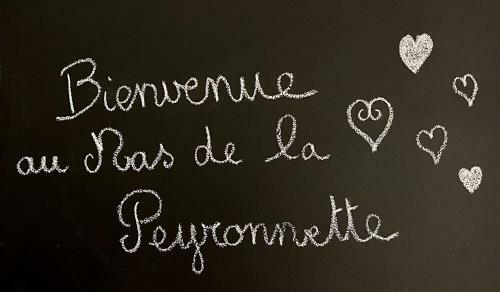 Bienvenue
au Mas de la
Peyronnette